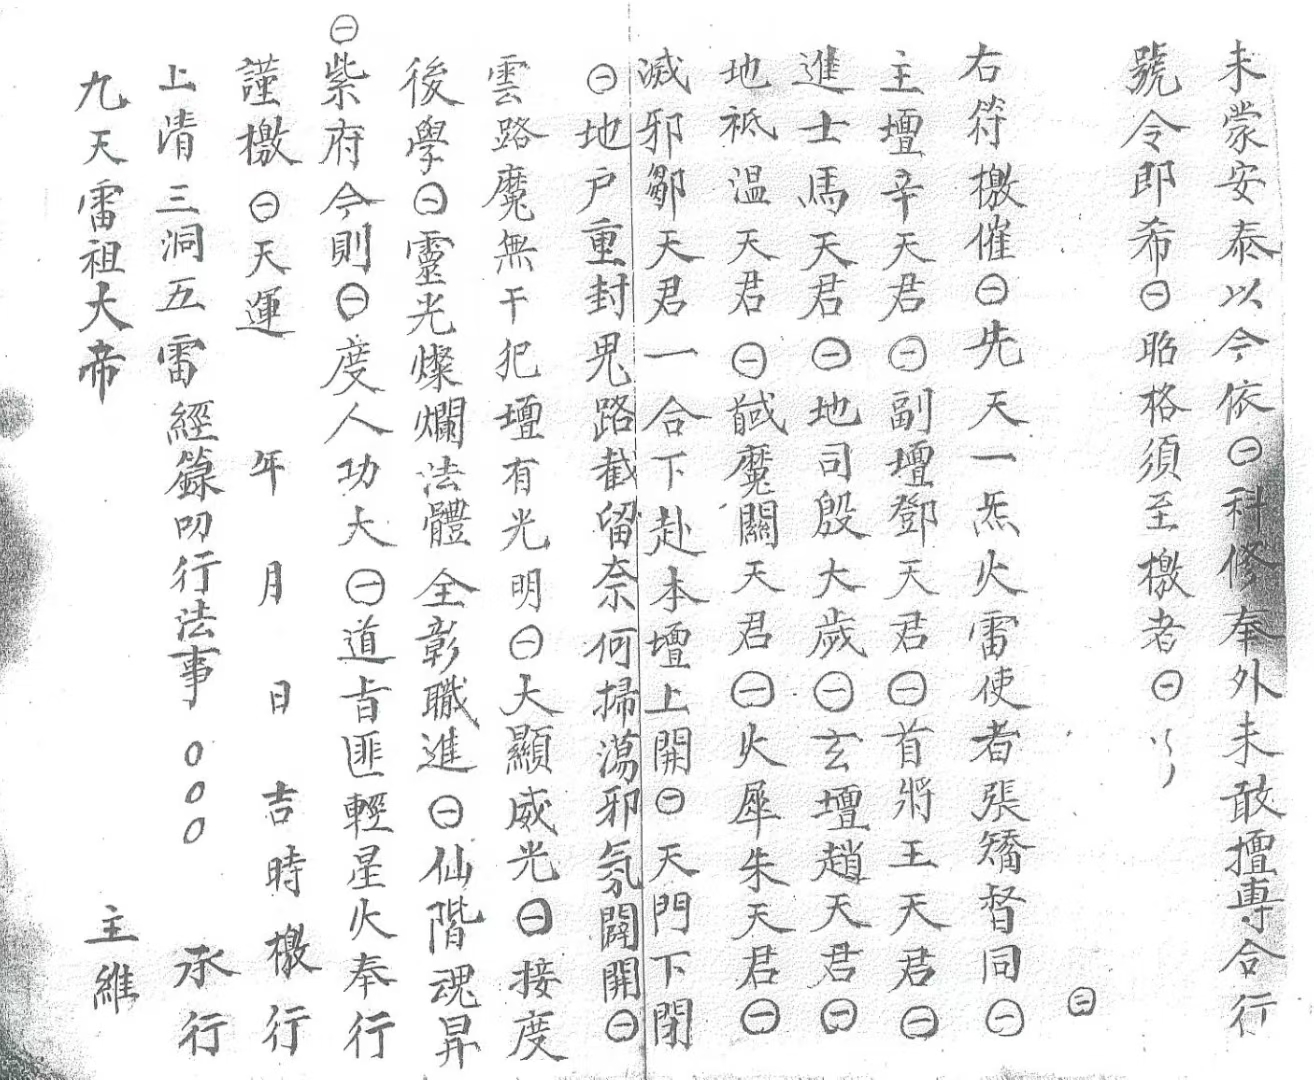 未蒙安泰以今依㊀科修奉外未敢擅專合行
號令即希㊀昭格須至檄者㊀
㊁
右符檄催㊀先天一炁火雷使者張矯督同㊀
主壇辛天君㊀副壇鄧天君㊀首將王天君㊀
進士馬天君㊀地司殷大歲㊀玄壇趙天君㊀
地祇溫天君㊀馘魔關天君㊀火犀朱天君㊀
滅邪鄒天君一合下赴本壇上開㊀天門下閉
㊀地戶重封鬼路截留奈何掃蕩邪氛闢開㊀
雲路魔無干犯壇有光明㊀大顯威光㊀接度
後學㊀靈光燦爛法體全彰職進㊀仙階魂昇
㊀紫府今則㊀度人功大㊀道旨匪輕星火奉行
謹檄㊀天運 年 月 日吉時檄行
上清三洞五雷經籙叨行法事○○○ 承行
九天雷祖大帝 主維